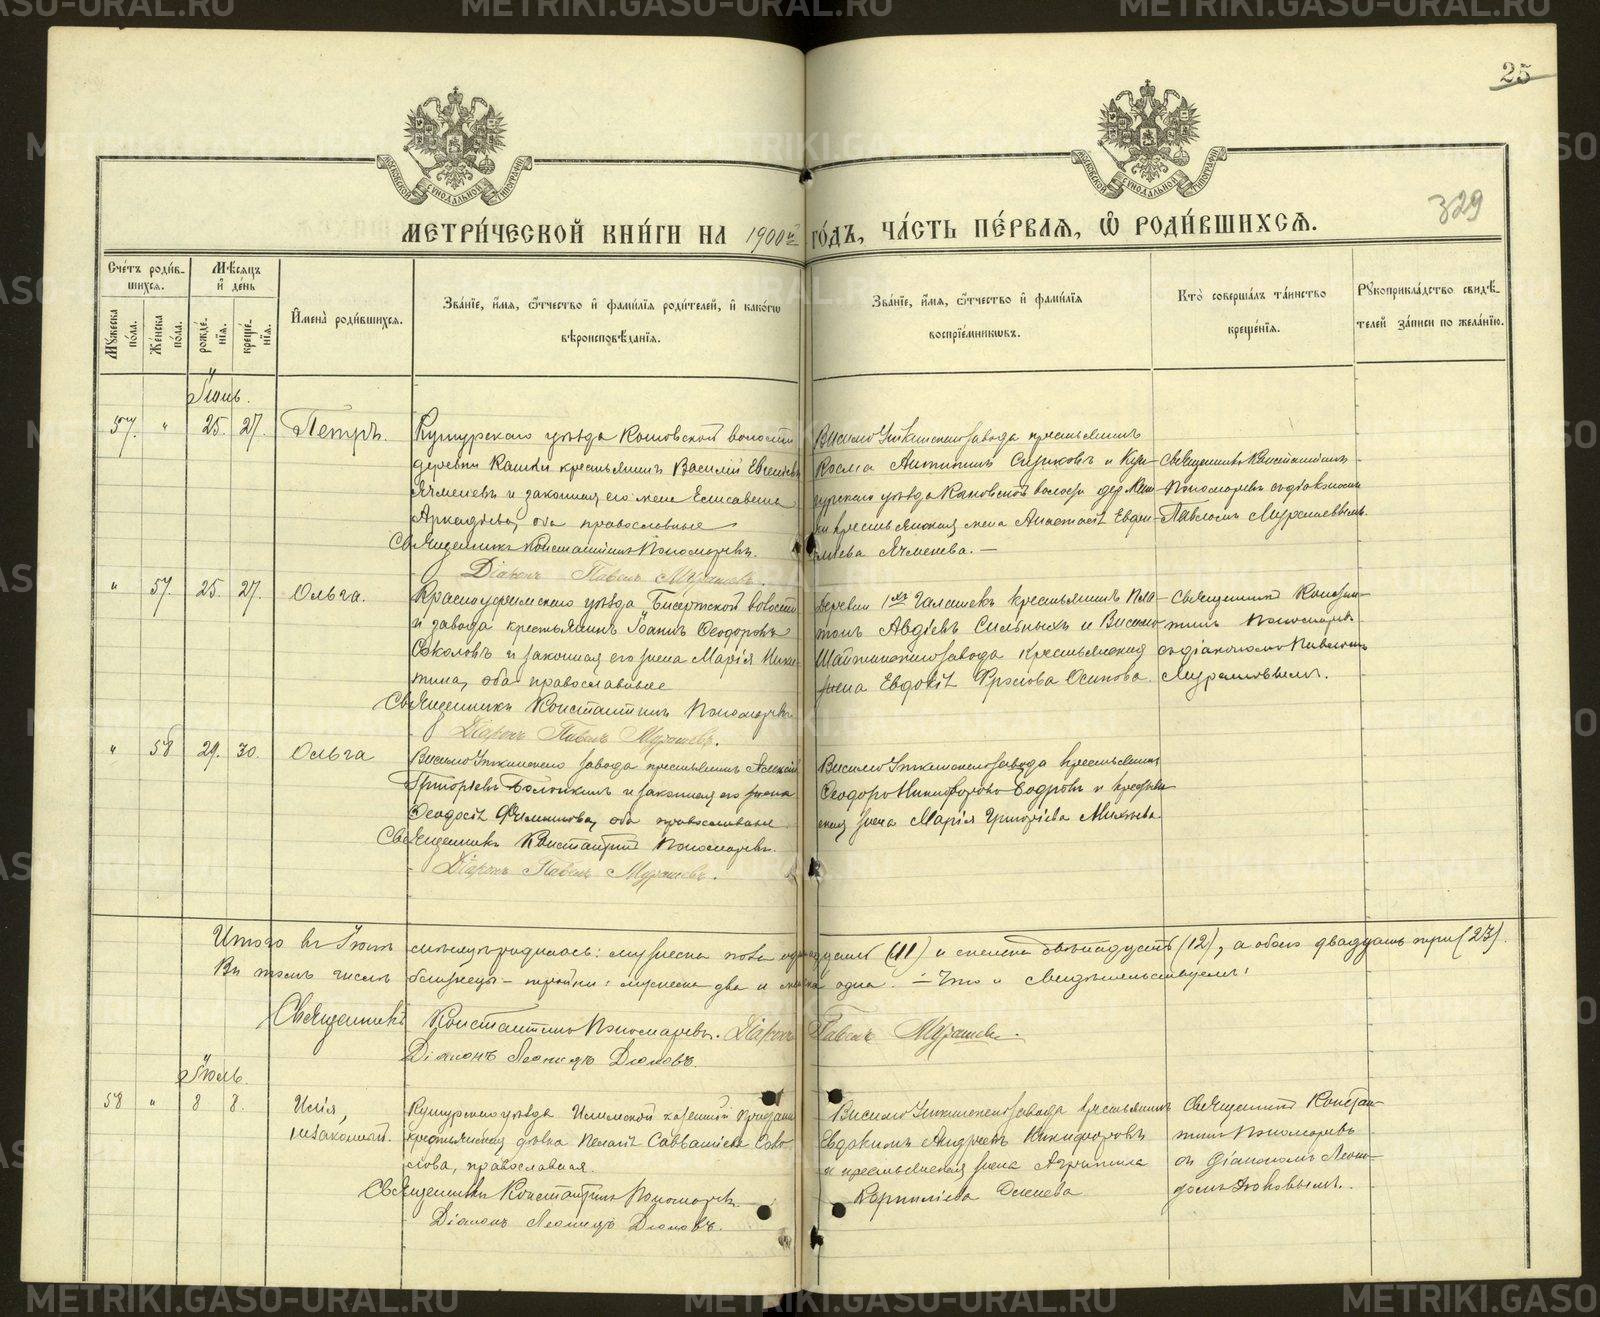 METRIKI.GASO-URAL.RU
25
329
МОСКОВСКОЙ СѴНОДАЛЬНОЙ ТИПОГРАФІИ
МЕТРИ́ЧЕСКОЙ КНИ́ГИ НА 1900й ГО́ДЪ, ЧА́СТЬ ПЕ́РВАѦ, Ѡ РОДИ́ВШИХСѦ.
Сче́тъ роди́вшихсѧ.
Му́жеска по́ла.
Же́нска по́ла.
Мѣ́сѧцъ и де́нь
рожде́нїѧ.
креще́нїѧ.
Имена̀ роди́вшихсѧ.
Зва́нїе, и́мѧ, ѻ҆́тчество и фами́лїѧ роди́телей, и како́гѡ
вѣроисповѣ́данїѧ.
Зва́нїе, и́мѧ, ѻ҆́тчество и фами́лїѧ
воспрїе́мникѡвъ.
Кто̀ соверша́лъ та́инство
креще́нїѧ.
Рꙋкоприкла́дство свидѣ́-
телей за́писи по жела́нїю.
Іюнь.
57. " 25. 27. Петръ.
Кунгурскаго уѣзда Кашовской волости
деревни крестьянинъ Василій
Ячменевъ и законная его жена Елисавета
Аркадіева, оба православные
Священникъ Константинъ Пономаревъ.
Діаконъ Павелъ Мурашевъ.
Висимо Уткинскаго завода крестьянинъ
Косма и Кун-
гурскаго уѣзда волости дер.
крестьянская жена
Ячменева. —
Священникъ Константинъ
Пономаревъ съ діакономъ
Павломъ Мурашевымъ.
" 57. 25. 27. Ольга.
Красноуфимскаго уѣзда, Бисертской волости
и завода крестьянинъ Іоаннъ Ѳеодоровъ
Соколовъ и законная его жена Марія Ники-
тина, оба православные
Священникъ Константинъ Пономаревъ
Діаконъ Павелъ Мурашевъ.
Деревни Галашекъ крестьянинъ Пла-
тонъ Авдіевъ Сильныхъ и Висимо
Шайтанскаго завода крестьянская
жена Евдокія Осипова.
Священникъ Констан-
тинъ Пономаревъ
съ діакономъ Павломъ
Мурашовымъ.
" 58 29. 30. Ольга
Висимо Уткинскаго завода крестьянинъ Алексій
Григорьевъ и законная его жена
Ѳеодосія оба православные
Священникъ Константинъ Пономаревъ.
Діаконъ Павелъ Мурашевъ.
Висимо Уткинскаго завода крестьянинъ
Ѳеодоръ Никифоровъ и крестьян-
ская жена Марія Григоріева
Итого въ Іюнѣ мѣсяцѣ родилось: мужеска пола одинадцать (11) и женска двѣнадцать (12), а обоего двадцать три (23).
Въ томъ числѣ близнецы - тройни: мужеска два и женска одна. — Что и свидѣтельствуемъ:
Священникъ Константинъ Пономаревъ. Діаконъ Павелъ Мурашевъ.
Діаконъ Леонидъ
Іюль.
58 " 8 8. Илія,
незаконный.
Кунгурскаго уѣзда Илимской казенной пристани
крестьянская дѣвка Савватіева Соко-
лова, православная.
Священникъ Константинъ Пономаревъ.
Діаконъ Леонидъ
Висимо Уткинскаго завода крестьянинъ
Евдокимъ Андреевъ Никифоровъ
и крестьянская жена Агрипина
Корниліева
Священникъ Констан-
тинъ Пономаревъ
съ діакономъ Леони-
домъ